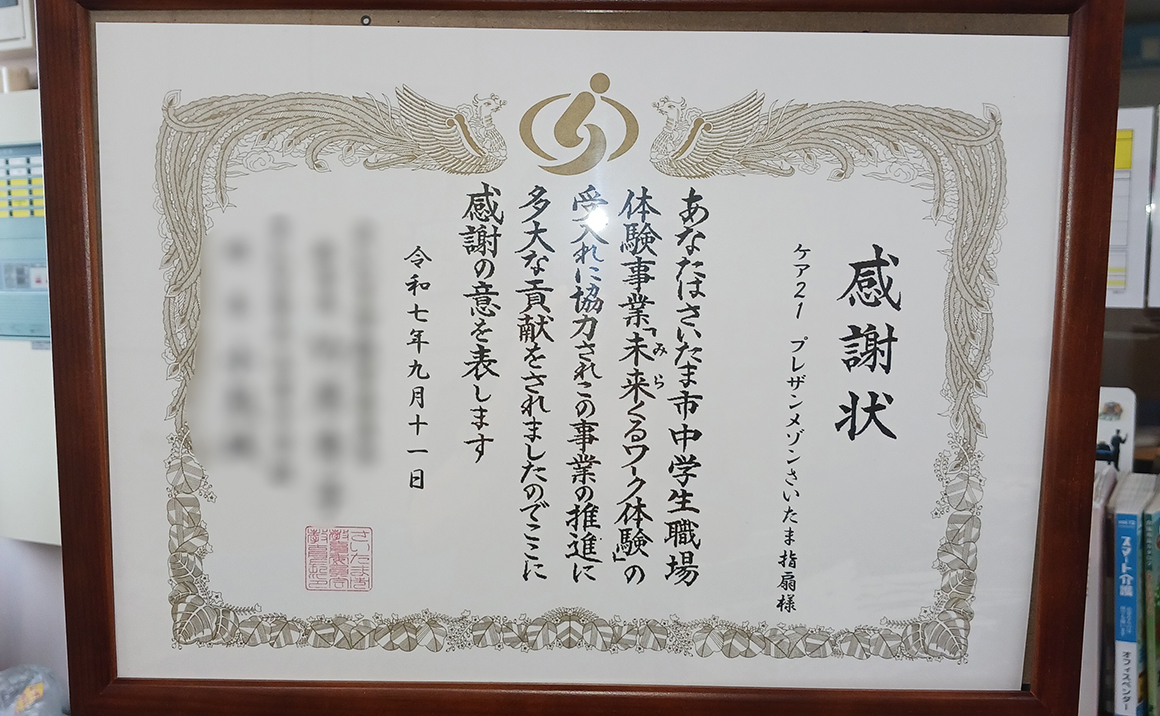 感謝状
ケア21 プレザンメゾンさいたま指扇様
あなたはさいたま市中学生職場
体験事業「未来くるワーク体験」の
みら
受入れに協力されこの事業の推進に
多大な貢献をされましたのでここに
感謝の意を表します
令和七年九月十一日
スマート介護
オフィスベンダー